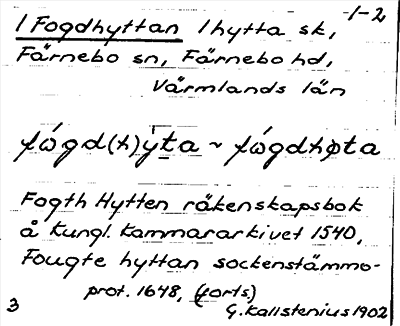 1-2
1 Fogdhyttan 1 hytta sk,
Färnebo sn, Färnebo hd,
Värmlands län
fógd(h)ỳta ~ fógdhøta
Fogth Hytten räkenskapsbok
å Kungl. Kammararkivet 1540,
Fougte hyttan sockenstämmo-
prot. 1648, (forts)
3 G. Kallstenius 1902